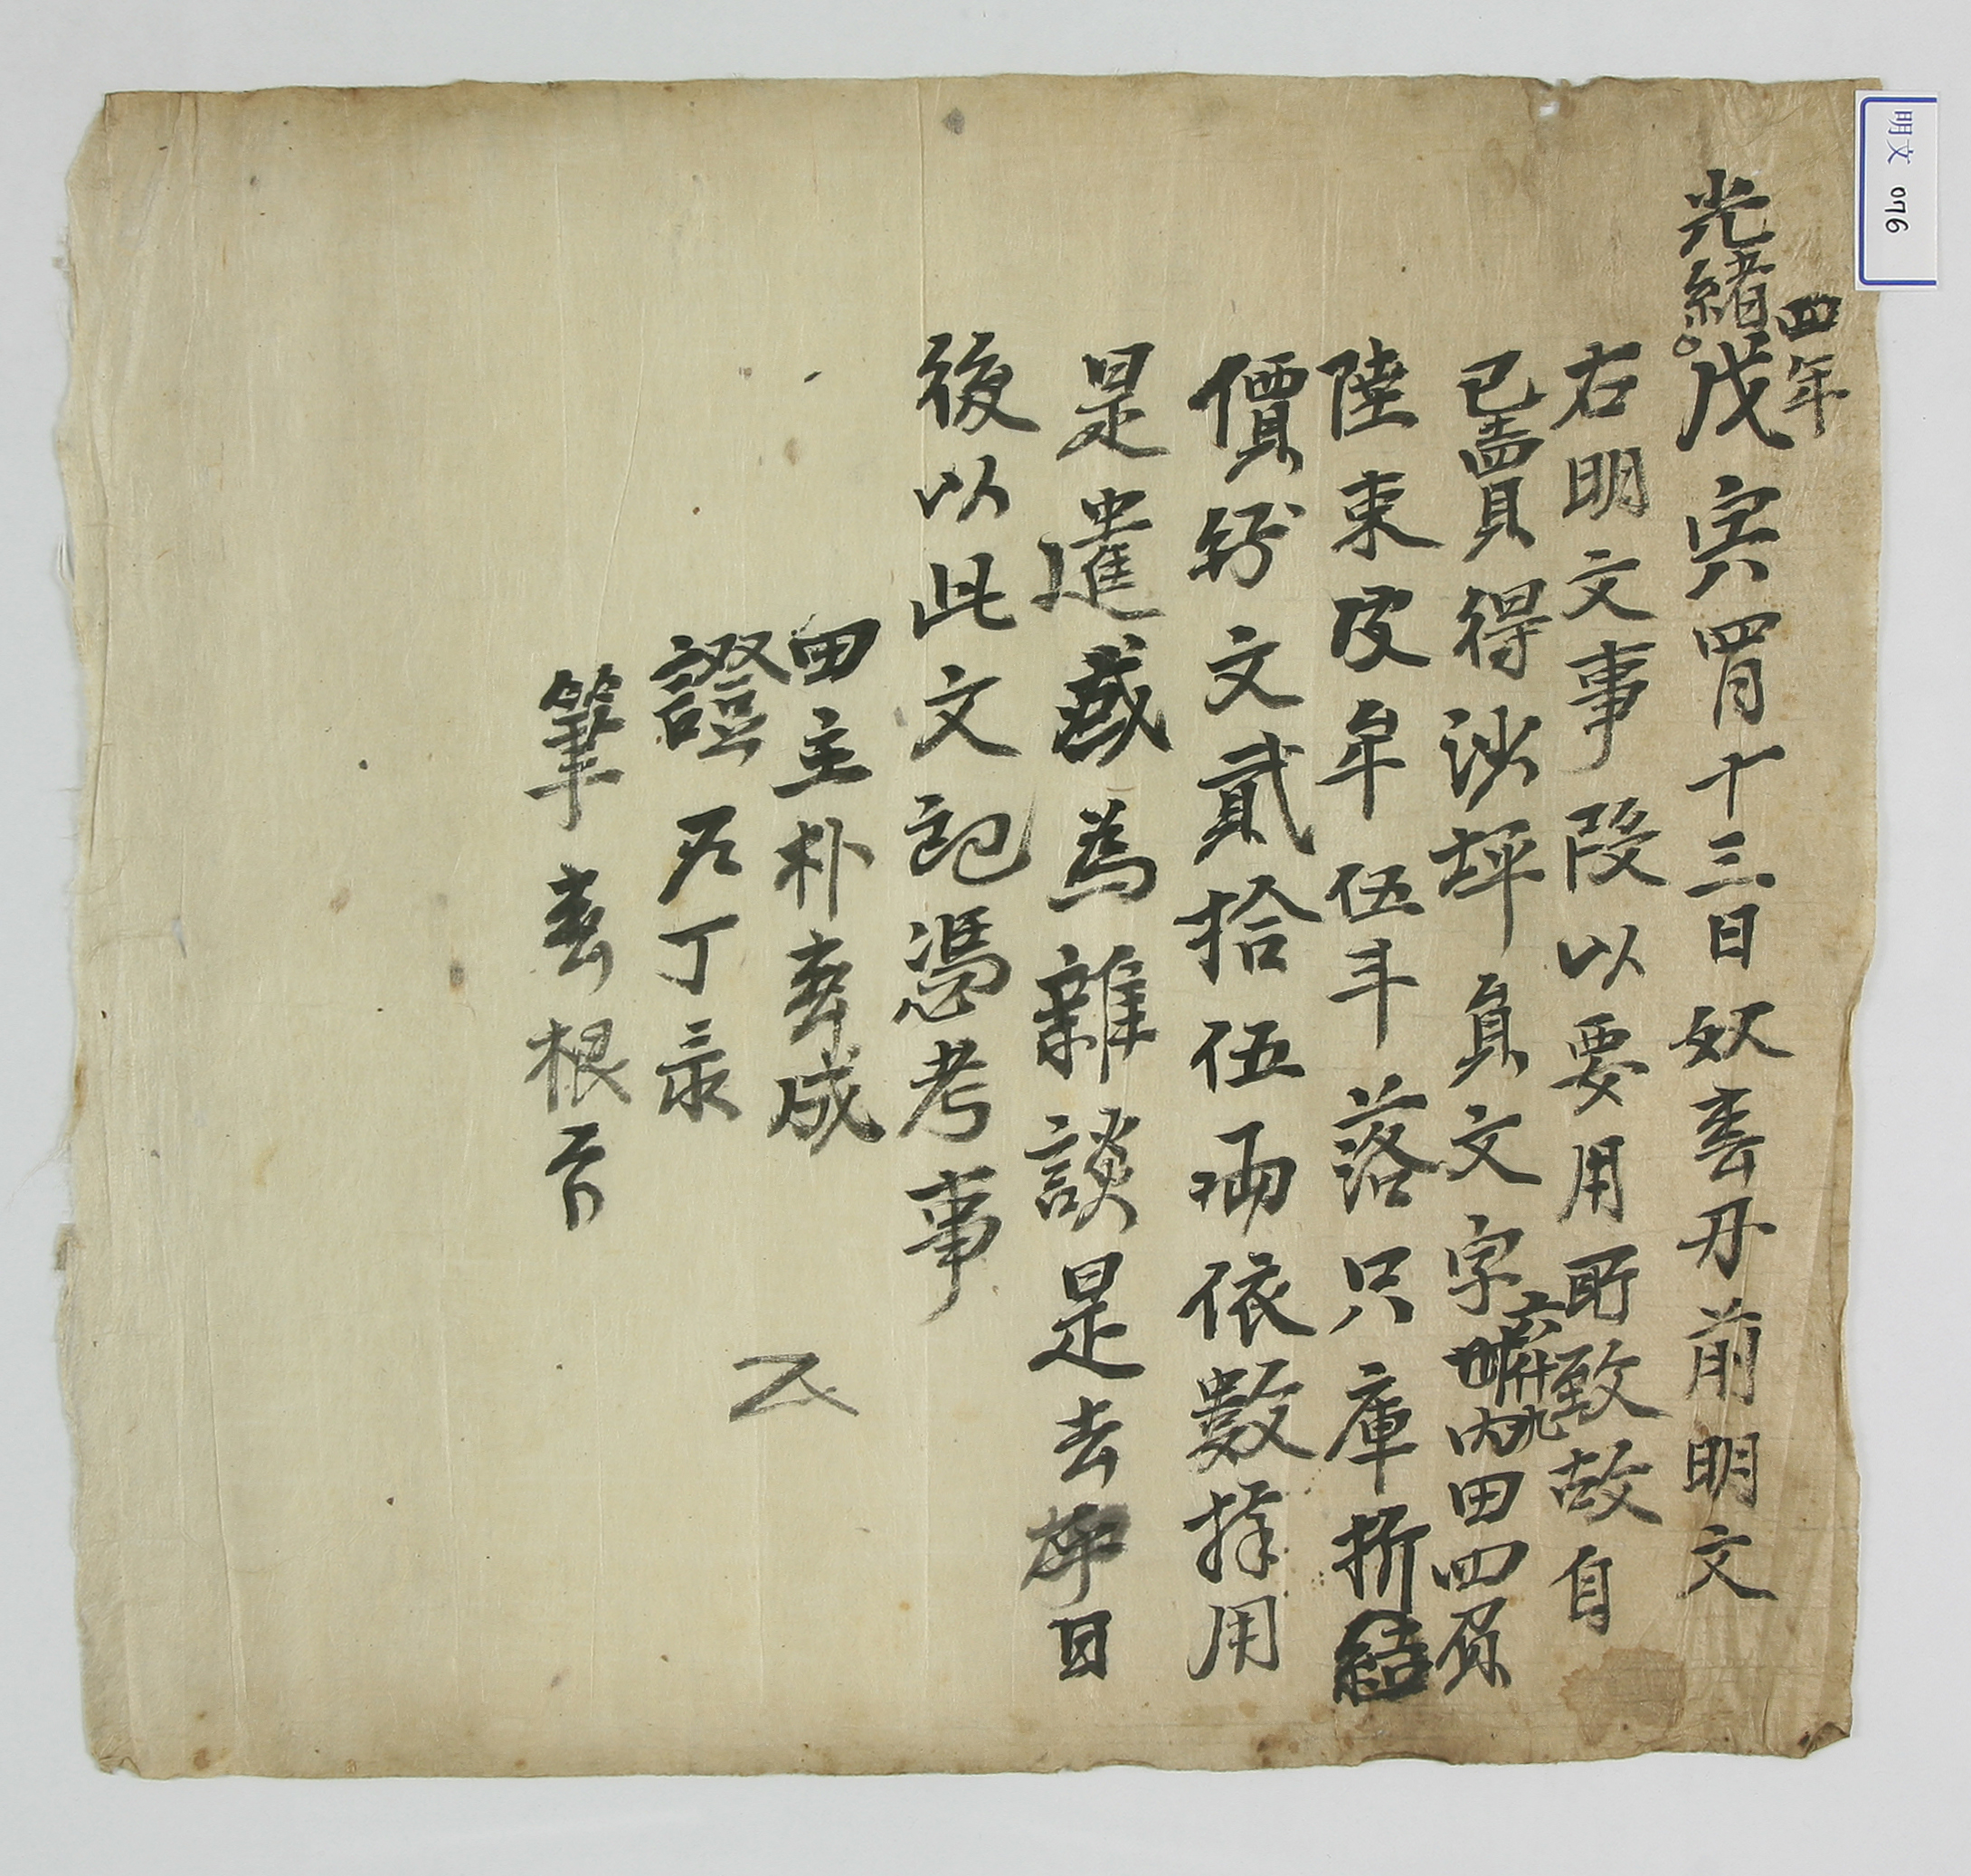 明文 076
光緖四年戊寅四月十三日奴春丹前明文
右明文事段以要用所致故自
己買得沙坪員文字內田四負
陸束皮牟伍斗落只庫折結
價錢文貳拾伍兩依數捧用
是遣為雜談是去 日
後以此文記憑考事
田主朴成
證丁彔
筆根